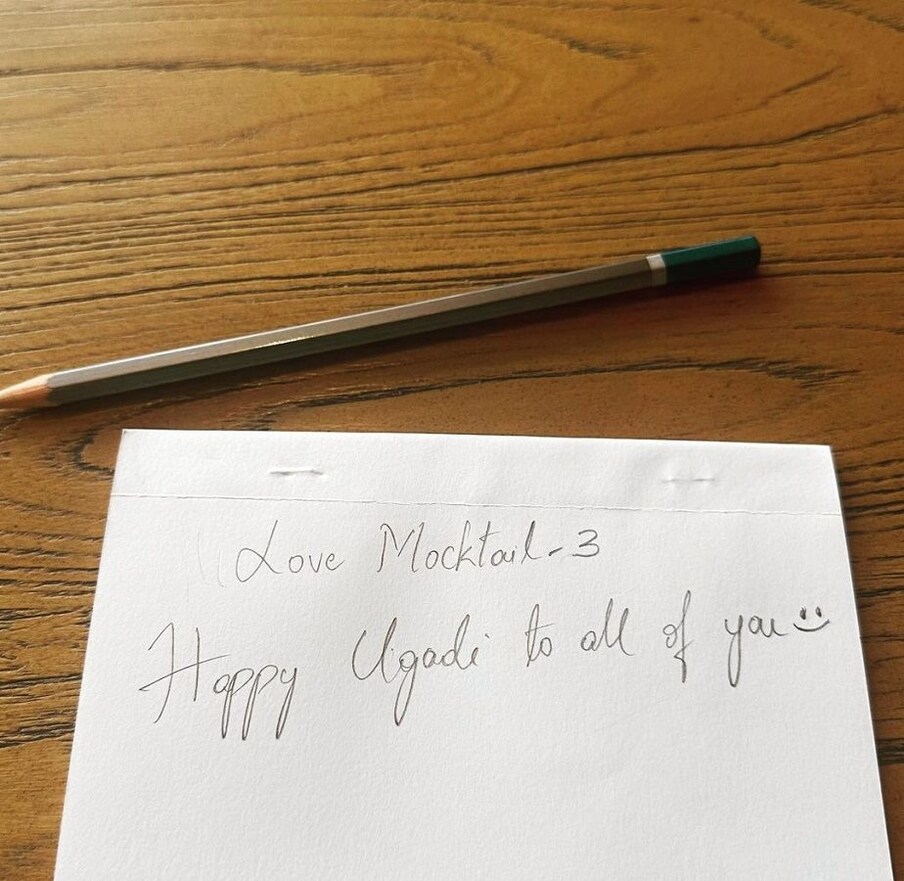 Love Mocktail-3
Happy Ugadi to all of you